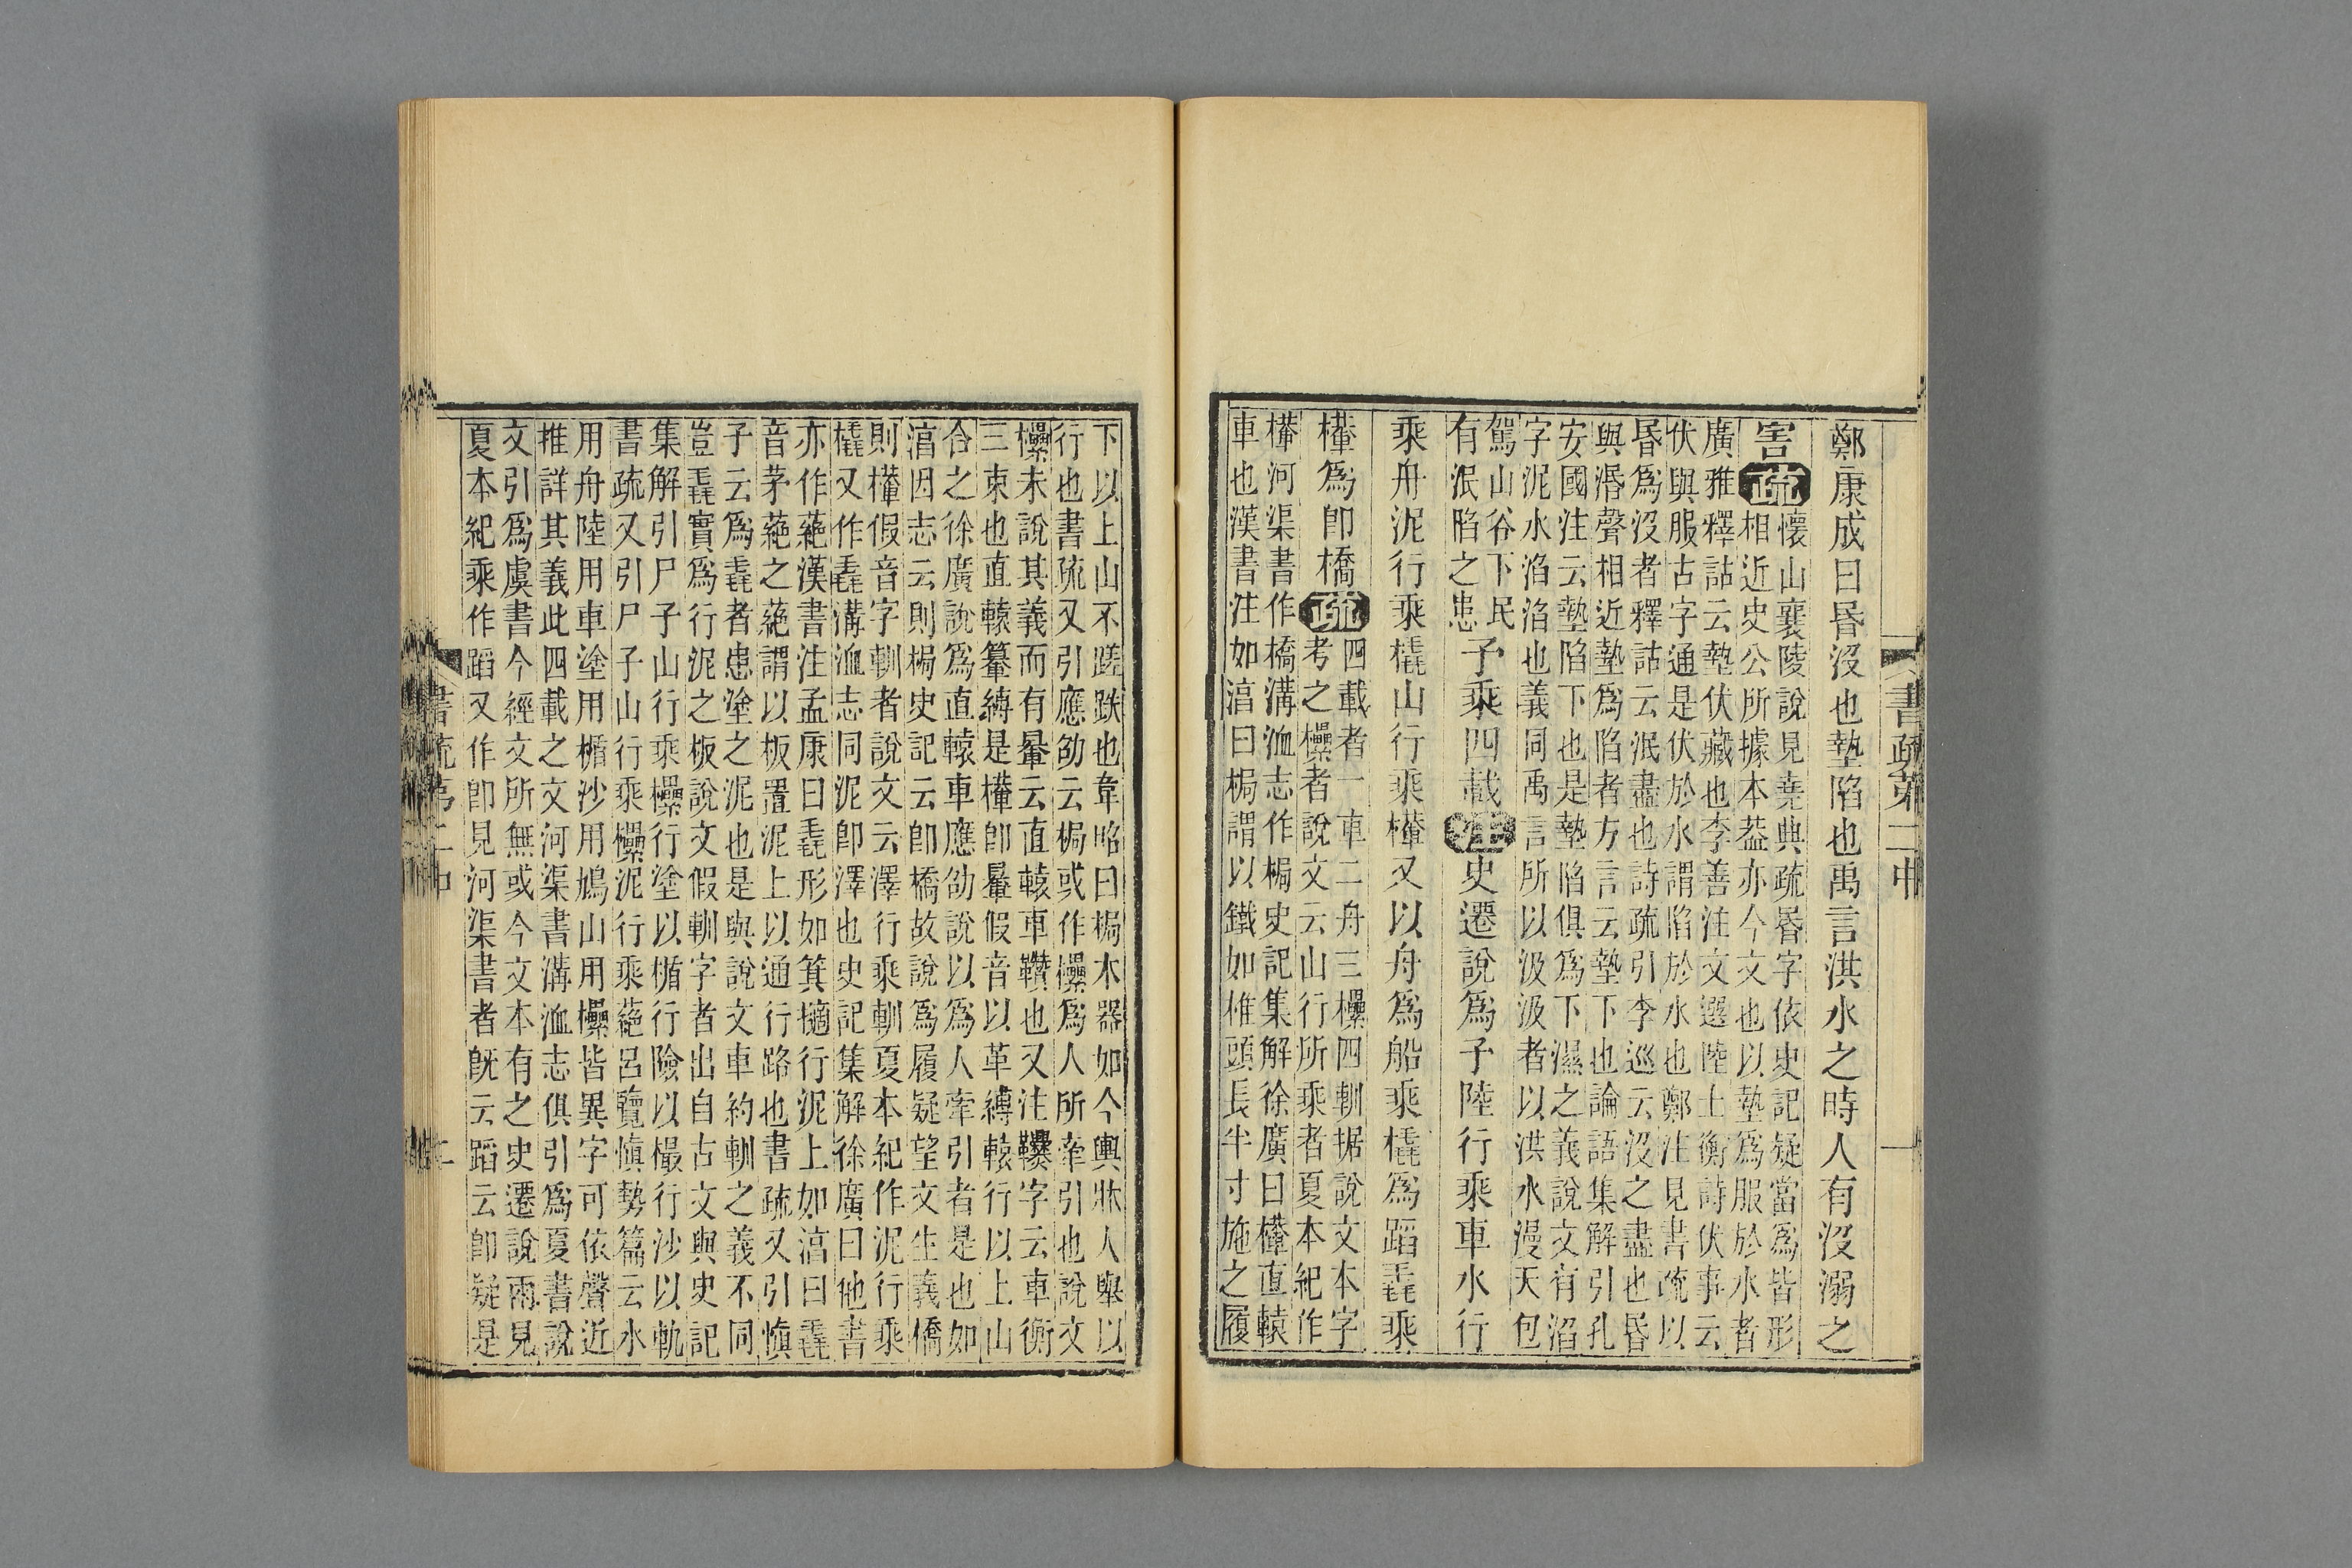 書疏第二中
一
鄭康成曰昬沒也墊陷也禹言洪水之時人有沒溺之
害疏懷山襄陵說見堯典疏昬字依史記疑當爲皆形
相近史公所據本葢亦今文也以墊爲服於水者
廣雅釋詁云墊伏藏也李善注文選陸士衡詩伏事云
伏與服古字通是伏於水謂陷於水也鄭注見書疏以
昬爲沒者釋詁云泯盡也詩疏引李巡云沒之盡也昬
與湣聲相近墊爲陷者方言云墊下也論語集解引孔
安國注云墊陷下也是墊陷俱爲下濕之義說文有淊
字泥水淊淊也義同禹言所以汲汲者以洪水漫天包
駕山谷下民
有泯陷之患予乘四載注史遷說爲予陸行乘車水行
乘舟泥行乘橇山行乘檋又以舟爲船乘橇爲蹈毳乘
檋爲卽橋疏四載者一車二舟三欙四軕据說文本字
考之欙者說文云山行所乘者夏本紀作
檋河渠書作橋溝洫志作梮史記集解徐廣曰檋直轅
車也漢書注如淳曰梮謂以鐵如椎頭長半寸施之履
下以上山不蹉跌也韋昭曰梮木器如今輿牀人轝以
行也書疏又引應劭云梮或作欙爲人所牽引也說文
欙未說其義而有暈云直轅車鞼也又注鞼字云車衡
三束也直轅暈縛是檋卽暈假音以革縛轅行以上山
合之徐廣說爲直轅車應劭說以爲人牽引者是也如
淳因志云則梮史記云卽橋故說爲履疑望文生義僑
則檋假音字軕者說文云澤行乘軕夏本紀作泥行乘
橇又作毳溝洫志同泥卽澤也史記集解徐廣曰他書
亦作蕝漢書注孟康曰毳形如箕擿行泥上如淳曰毳
音茅蕝之蕝謂以板置泥上以通行路也書疏又引愼
子云爲毳者患塗之泥也是與說文車約軕之義不同
豈毳實爲行泥之板說文假軕字者出自古文與史記
集解引尸子山行乘欙行塗以楯行險以樶行沙以軌
書疏又引尸子山行乘欙泥行乘蕝呂覽愼勢篇云水
用舟陸用車塗用楯沙用鳩山用欙皆異字可依聲近
推詳其義此四載之文河渠書溝洫志俱引爲夏書說
文引爲虞書今經文所無或今文本有之史遷說兩見
夏本紀乘作蹈又作卽見河渠書者旣云蹈云卽疑是